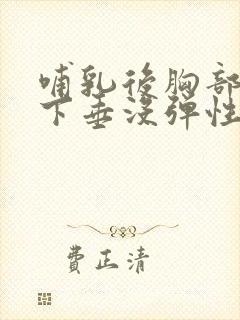 哺乳後胸部
下垂没彈性
費正清